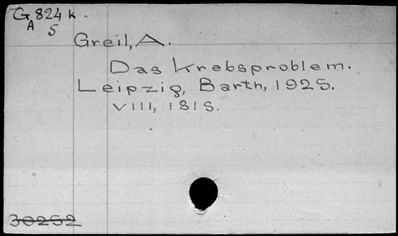 G 824 k.
A 5
Greil, A.
Das Krebsproblem.
Leipzig, Barth, 1925.
VIII, 181 S.
30252